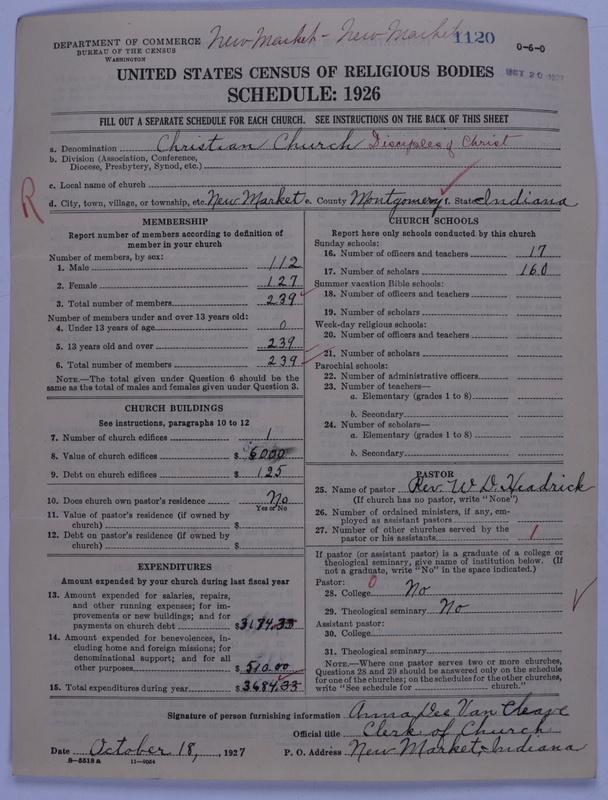 DEPARTMENT OF COMMERCE
BUREAU OF THE CENSUS
WASHINGTON
New Market - New Market
1120
0-6-0
UNITED STATES CENSUS OF RELIGIOUS BODIES
OCT 20
SCHEDULE: 1926
FILL OUT A SEPARATE SCHEDULE FOR EACH CHURCH. SEE INSTRUCTIONS ON THE BACK OF THIS SHEET
a. Denomination Christian Church Disciples of Christ
b. Division (Association, Conference, Diocese, Presbytery, Synod, etc.)
c. Local name of church
R
d. City, town, village, or township, etc. New Market e. County Montgomery f. State Indiana
MEMBERSHIP
Report number of members according to definition of
member in your church
Number of members, by sex:
1. Male 112
2. Female 127
3. Total number of members 239
Number of members under and over 13 years old:
4. Under 13 years of age 0
5. 13 years old and over 239
6. Total number of members 239
NOTE.—The total given under Question 6 should be the
same as the total of males and females given under Question 3.
CHURCH BUILDINGS
See instructions, paragraphs 10 to 12
7. Number of church edifices 1
8. Value of church edifices $ 6000
9. Debt on church edifices $ 125
10. Does church own pastor's residence No
Yes or No
11. Value of pastor's residence (if owned by
church) $
12. Debt on pastor's residence (if owned by
church) $
EXPENDITURES
Amount expended by your church during last fiscal year
13. Amount expended for salaries, repairs,
and other running expenses; for im-
provements or new buildings; and for
payments on church debt $ 3174.33
14. Amount expended for benevolences, in-
cluding home and foreign missions; for
denominational support; and for all
other purposes $ 510.00
15. Total expenditures during year $ 3684.33
CHURCH SCHOOLS
Report here only schools conducted by this church
Sunday schools:
16. Number of officers and teachers 17
17. Number of scholars 160
Summer vacation Bible schools:
18. Number of officers and teachers
19. Number of scholars
Week-day religious schools:
20. Number of officers and teachers
21. Number of scholars
Parochial schools:
22. Number of administrative officers
23. Number of teachers—
a. Elementary (grades 1 to 8)
b. Secondary
24. Number of scholars—
a. Elementary (grades 1 to 8)
b. Secondary
PASTOR
25. Name of pastor Rev. W. D. Headrick
(If church has no pastor, write "None")
26. Number of ordained ministers, if any, em-
ployed as assistant pastors
27. Number of other churches served by the
pastor or his assistants 1
If pastor (or assistant pastor) is a graduate of a college or
theological seminary, give name of institution below. (If
not a graduate, write "No" in the space indicated.)
Pastor: 0
28. College No
29. Theological seminary No
Assistant pastor:
30. College
31. Theological seminary
NOTE.—Where one pastor serves two or more churches,
Questions 28 and 29 should be answered only on the schedule
for one of the churches; on the schedules for the other churches,
write "See schedule for church."
Signature of person furnishing information Anna Dee Van Cleave
Official title Clerk of Church
Date October 18, 1927 P. O. Address New Market, Indiana
8-5518 a 11-4034